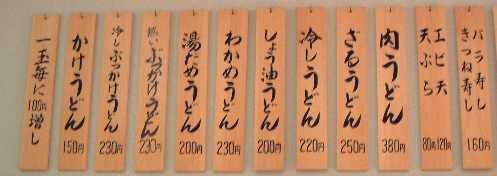 バラ寿し
きつね寿し
160円
エビ天
天ぷら
80円120円
肉うどん
380円
ざるうどん
250円
冷しうどん
220円
しょう油うどん
200円
わかめうどん
230円
湯だめうどん
200円
熱いぶっかけうどん
230円
冷しぶっかけうどん
230円
かけうどん
150円
一玉毎に100円増し